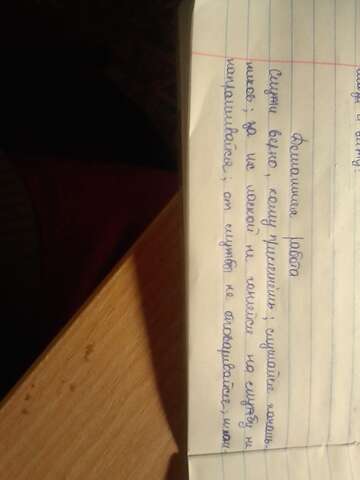 Домашняя работа
Служи верно, кому присягнёшь; слушайся началь-
ников; за их лаской не гоняйся на службу не
напрашивайся; от службы не отговаривайся; и пом-